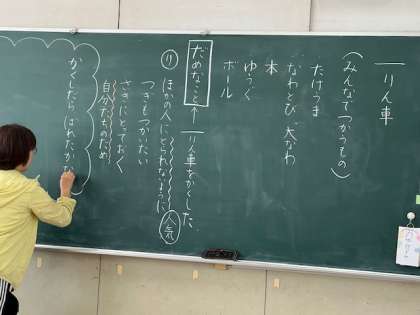 一りん車
(みんなでつかうもの)
たけうま
なわとび 大なわ
本
ゆうぐ
ボール
だめなこと ← 一りん車をかくした。
り ほかの人にとられないように 人気
つぎもつかいたい
さきにとっておく
自分たちのため
かくしたら ばれたかな